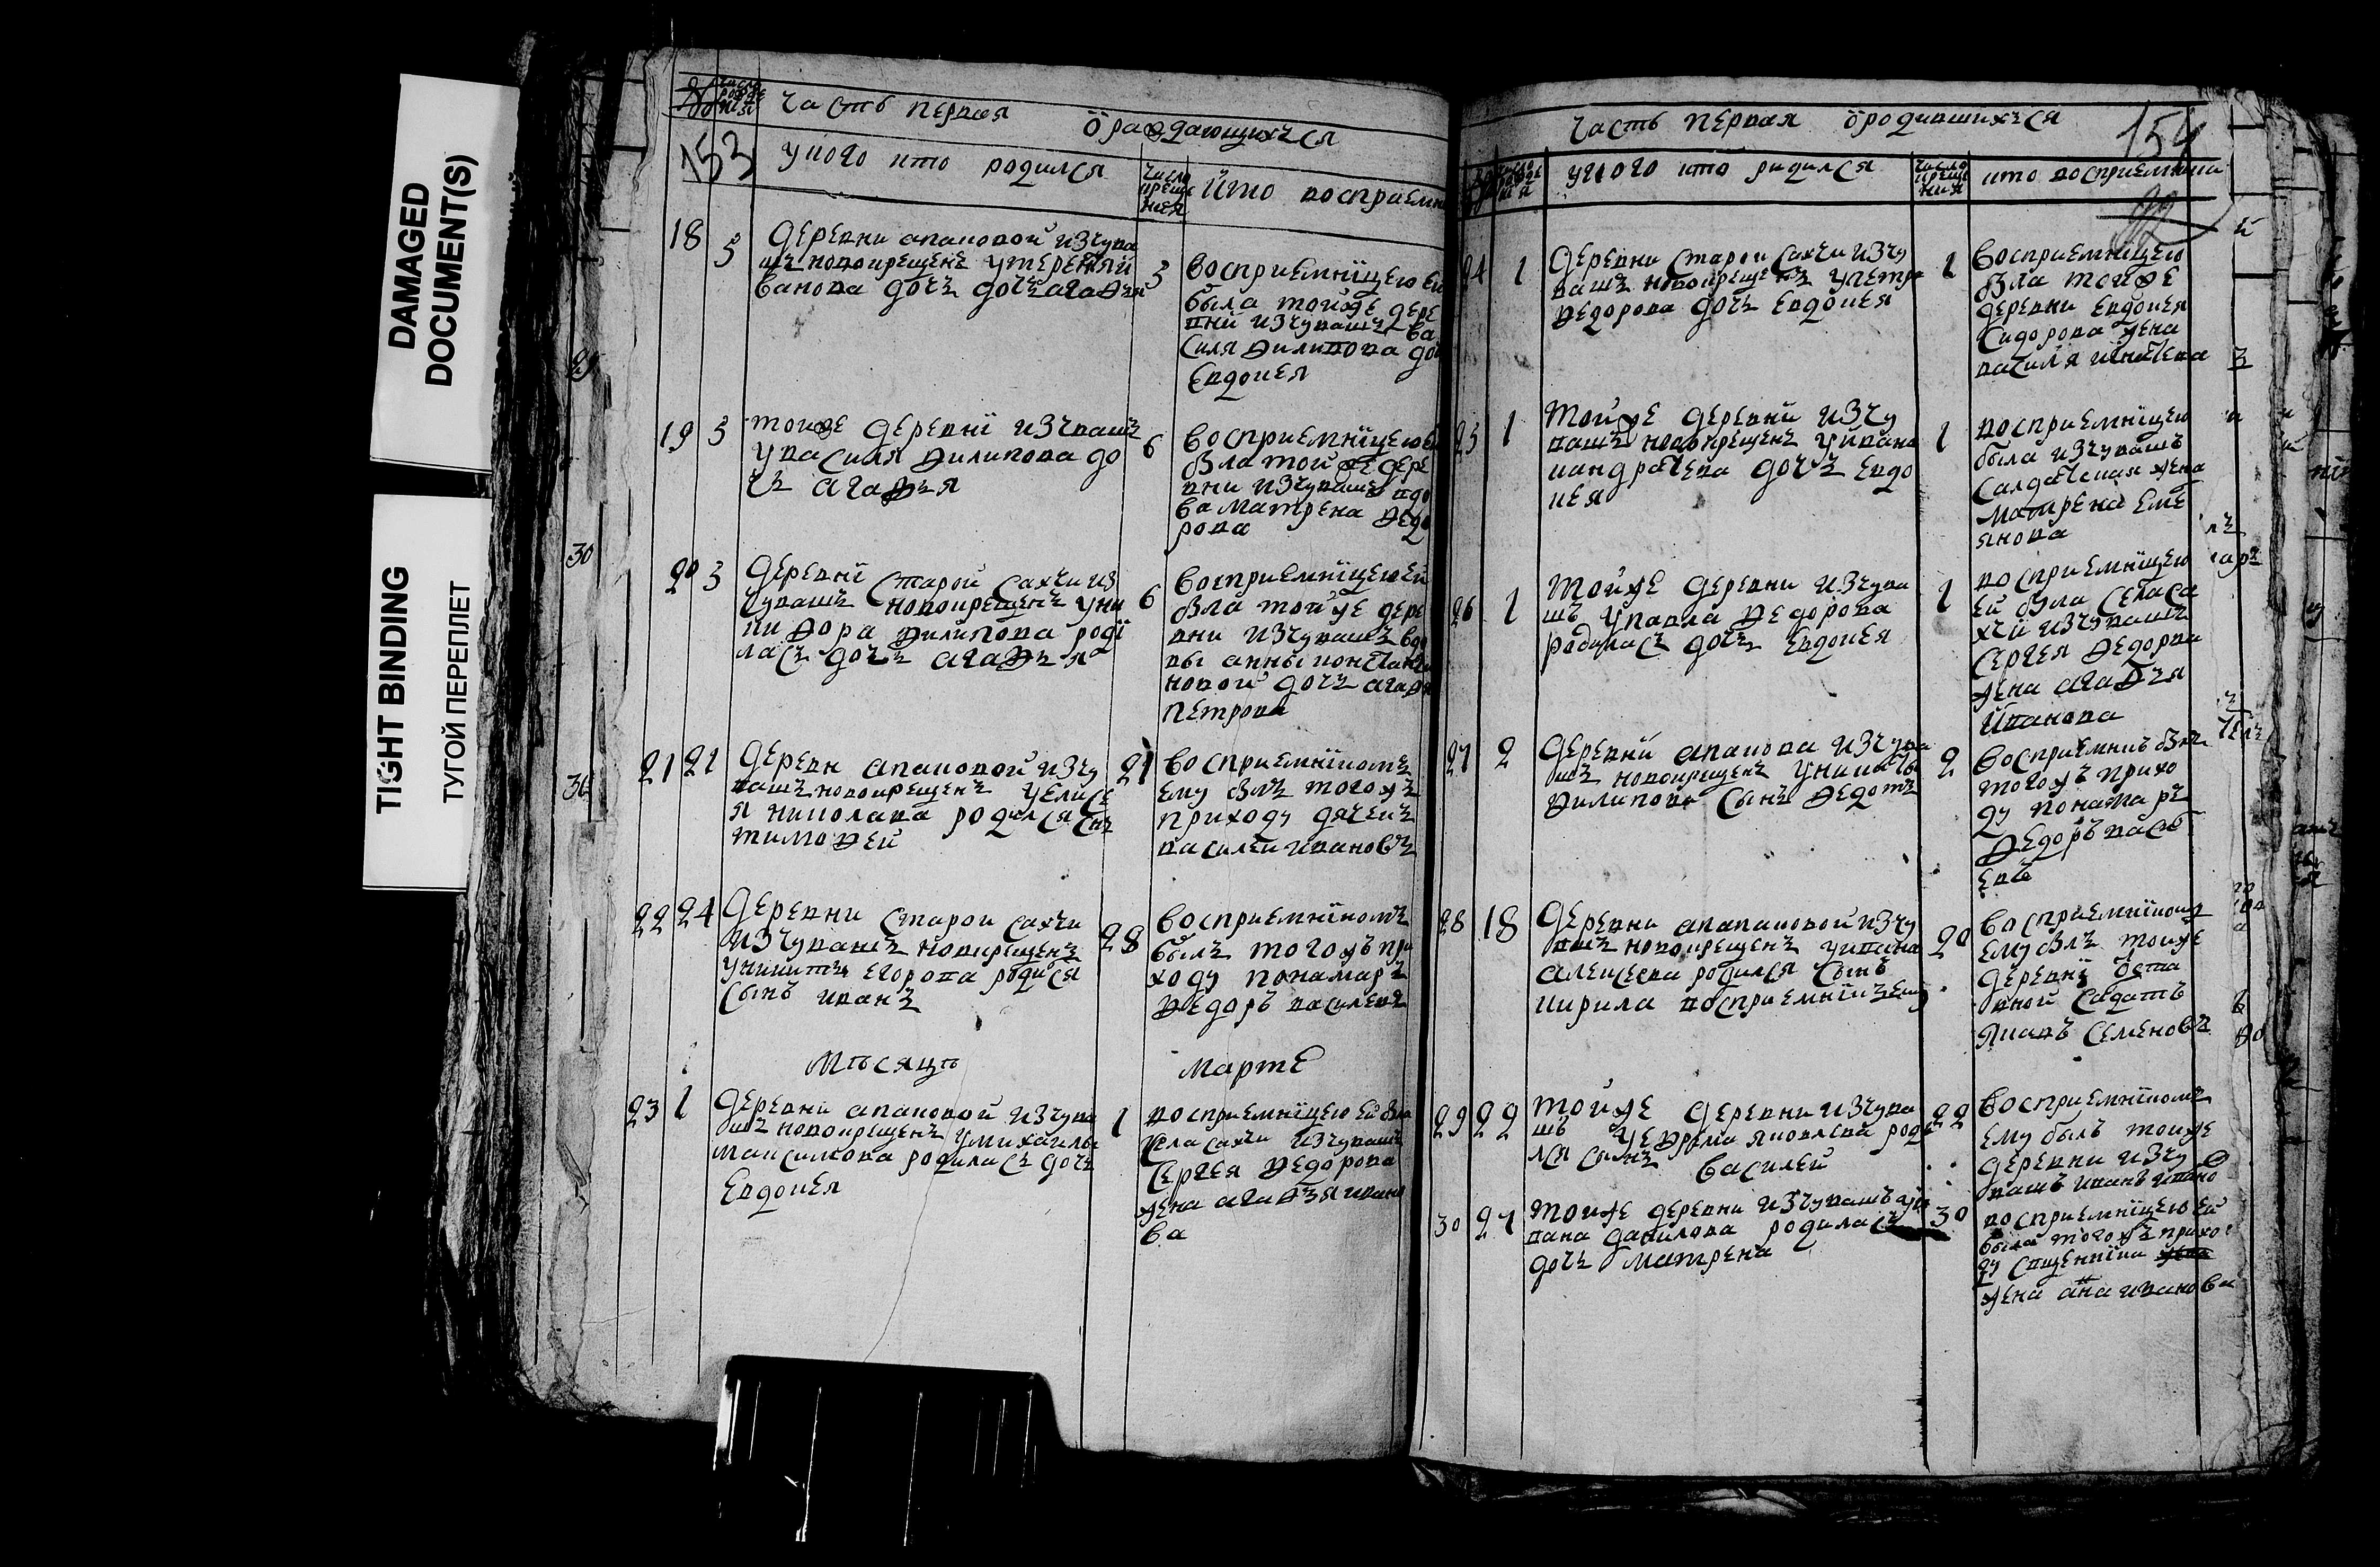 DAMAGED
DOCUMENT(S)
TIGHT BINDING
ТУГОЙ ПЕРЕПЛЕТ
число
рожде
ния
часть первая ораждающихъся
153
у кого кто родился
число
креще
ния
кто восприемн
18 5
деревни апаковой изчува
шъ новокрещенъ утерентя и
ванова дочъ дочъ агафья
5
восприемницею ей
была тойже дере
вни изчувашъ ва
силя филипова до
евдокея
19 5
тойже деревни изчвашъ
у василя филипова до
чъ агафья
6
восприемницею ей
бла тойже дере
вни изчувашъ вдо
ва матрена федо
рова
20 5
деревни старой сахчи из
чувашъ новокрещенъ уни
кифора филипова роди
ласъ дочъ агафья
6
восприемницею ей
бла тойже дере
вни изчувашъ вдо
вы анны константи
новой дочъ агафя
петрова
21 21
деревн апаковой изчу
вашъ новокрещенъ уелисе
я николава родился снъ
тимофей
21
восприемникомъ
ему блъ тогожъ
приходу дячекъ
василеи ивановъ
22 24
деревни старои сахчи
изчувашъ новкрещенъ
уникиты егорова родися
сынъ иванъ
28
восприемникомъ
былъ тогожъ при
ходу понамаръ
федоръ василевъ
мъсяцъ марте
23 1
деревни апаковой изчува
шъ новокрещенъ умихаилы
максимова родиласъ дочъ
евдокея
1
восприемницею ей бла
села сахчи изчувашъ
сергея федорова
жена агафъя ивано
ва
часть первая ородившихъся
154
число
у кого кто радился
число
креще
ния
кто восприемники
24 1
деревни старои сахчи изчу
вашъ новокрещенъ упетра
федорова дочъ евдокея
1
восприемницею
бла тойже
деревни евдокея
сидорова жена
василя игнатева
25 1
тойже деревни изчу
вашъ новокрещенъ уивана
кандратева дочъ евдо
кея
1
восприемницею
была изчувашъ
салдатская жена
матрена еме
янова
26 1
тойже деревни изчува
шъ упавла федорова
родиласъ дочъ евдокея
1
восприемницею
ей бла села са
хчи изчувашъ
сергея федорва
жена агафъя
иванова
27 2
деревни апакова изчува
шъ новокрещенъ уникиты
филипова сынъ федотъ
2
восприемникъ блъ
тогожъ прихо
ду понамаръ
федоръ васи
евъ
28 18
деревни апапаковой изчу
вашъ новокрещенъ
алексеева родился сынъ
кирила восприемникъ ему
20
восприемником
ему блъ тоиже
деревни оста
вной садатъ
яковъ семеновъ
29 22
тоиже деревни изчува
шъ уефрема яковлева роди
лся сынъ василей
22
восприемникомъ
ему былъ тоиже
деревни изчу
вашъ иванъ ивано
30 27
тоиже деревни изчувашъ уи
вана данилова родиласъ
дочъ матрена
30
восприемницею ей
была тогожъ прихо
ду свщенники
жена ана иванова
30